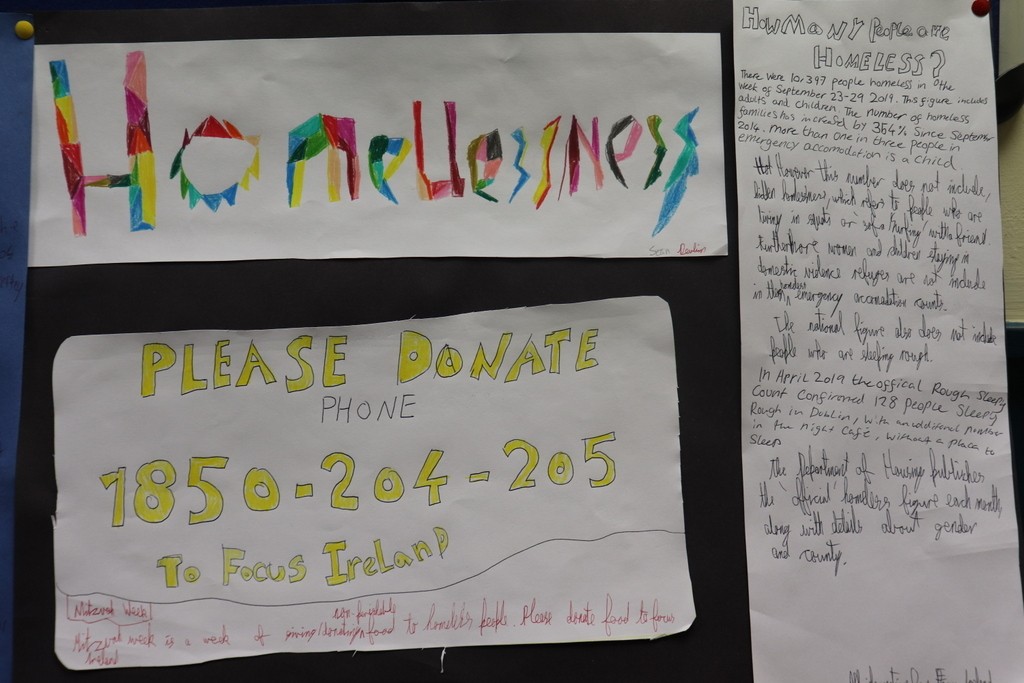 Homelessness
Sean
PLEASE DONATE
PHONE
1850-204-205
To Focus Ireland
Mitzvah Week
non-perishable
Mitzvah week is a week of giving/donating food to homeless people. Please donate food to focus
Ireland
How Many People are
HOMELESS?
There were 10,397 people homeless in the
week of September 23-29 2019. This figure includes
adults and children. The number of homeless
families has increased by 354% since September
2014. More than one in three people in
emergency accomodation is a child
However this number does not include,
hidden homelessness, which refers to people who are
living in squats or 'sofa surfing' with a friend.
Furthermore women and children staying in
domestic violence refuges are not include
in the homeless emergency accomodation counts.
The national figure also does not include
people who are sleeping rough.
In April 2019 the offical Rough Sleepy
Count Confiromed 128 people Sleepy
Rough in Dublin, with an additional number
in the Night Café, without a place to
Sleep
The Department of Housing publishes
the official homeless figure each month,
along with details about gender
and county.